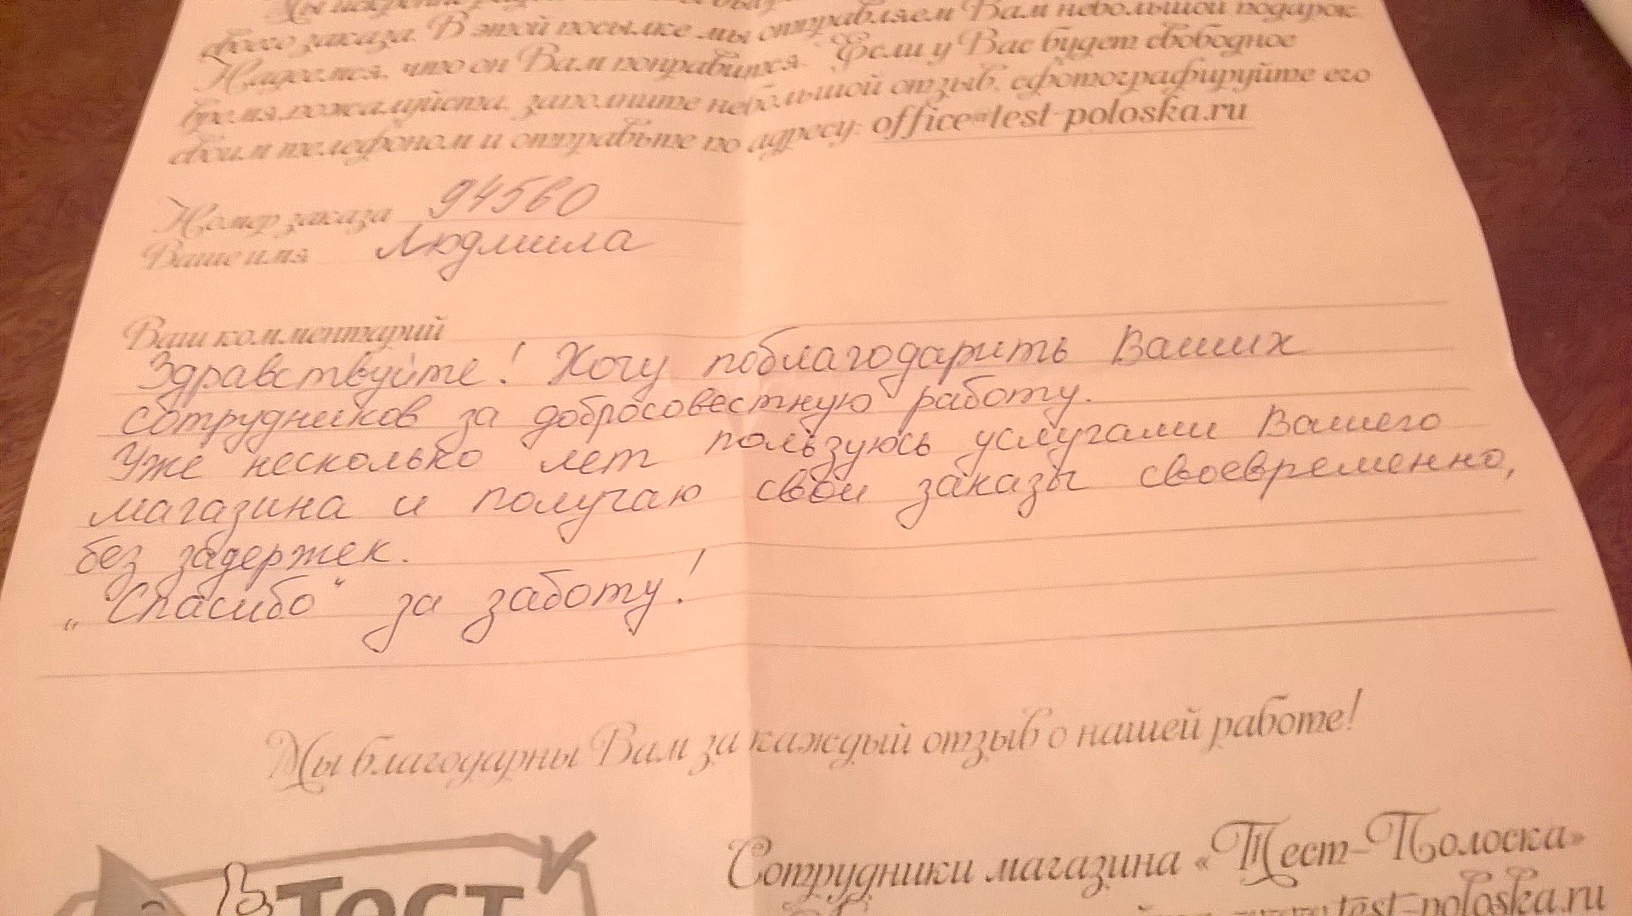 своего заказа. В этой посылке мы отправляем Вам небольшой подарок.
Надеемся, что он Вам понравится. Если у Вас будет свободное
время, пожалуйста, заполните небольшой отзыв, сфотографируйте его
своим телефоном и отправьте по адресу: office@test-poloska.ru
Номер заказа 94560
Ваше имя Людмила
Ваш комментарий
Здравствуйте! Хочу поблагодарить Ваших
сотрудников за добросовестную работу.
Уже несколько лет пользуюсь услугами Вашего
магазина и получаю свои заказы своевременно,
без задержек.
„Спасибо“ за заботу!
Мы благодарны Вам за каждый отзыв о нашей работе!
Тест
Сотрудники магазина «Тест-Полоска»
test-poloska.ru